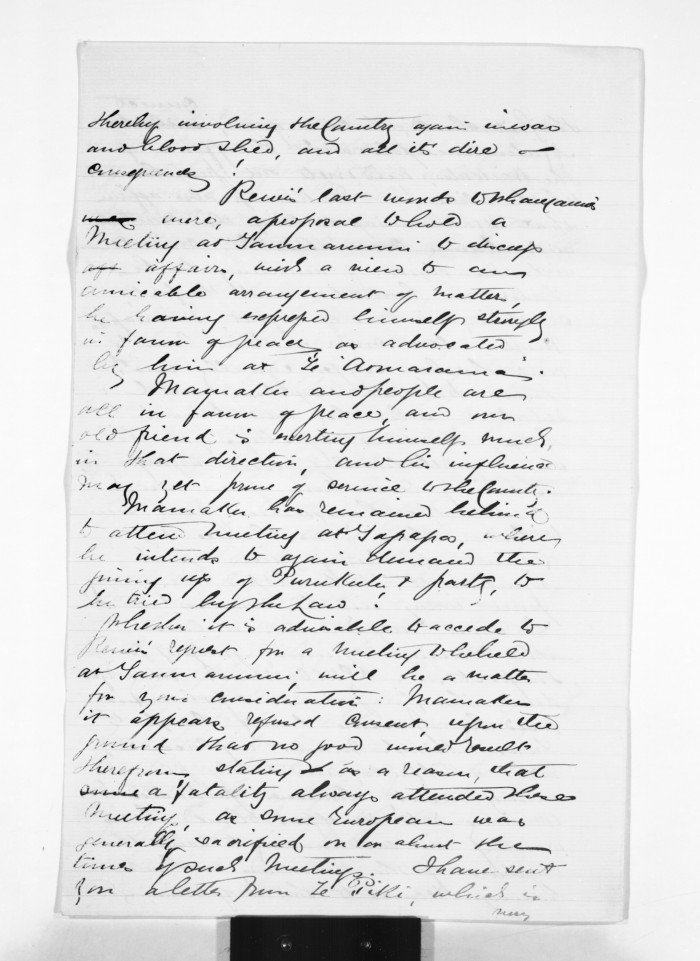 thereby involving the Country again in war
and blood shed, and all its dire
consequences!
Rewi's last words to
were, a proposal to hold a
Meeting at Taumarunui to discuss
affairs, with a view to an
amicable arrangement of matters,
he having expressed himself strongly
in favor of peace as advocated
by him at Te
Mamaku and people are
all in favor of peace, and our
old friend is exerting himself much,
in that direction, and his influence
may yet prove of service to the Country.
Mamaku has remained behind
to attend Meeting at Papapo, where
he intends to again demand the
giving up of Purukutu & party, to
be tried by the Law!
Whether it is advisable to accede to
Rewi's request for a Meeting to be held
at Taumarunui, will be a matter
for your consideration: Mamaku
it appears refused consent, upon the
ground that no good would result
therefrom, stating as a reason, that
a fatality always attended these
Meetings, as some European was
generally sacrificed on or about the
times of such Meetings. I have sent
you a letter from Te Piki, which is